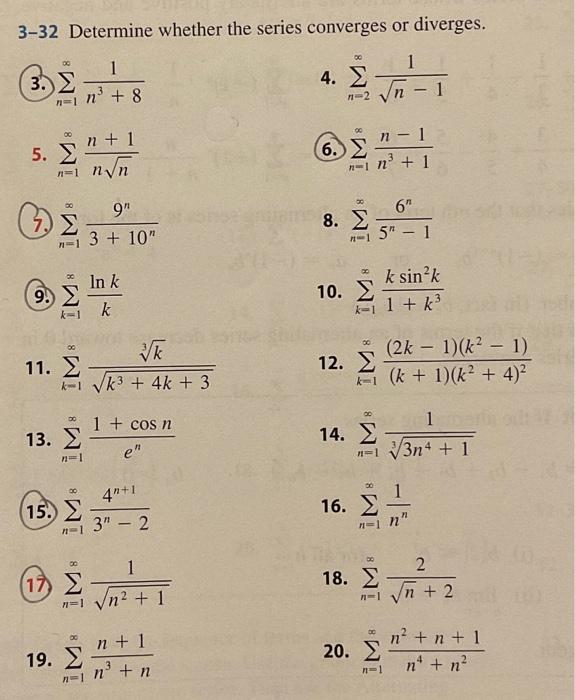 3–32 Determine whether the series converges or diverges.
3. ∑_{n=1}^{∞} 1/(n³ + 8)
4. ∑_{n=2}^{∞} 1/(√n − 1)
5. ∑_{n=1}^{∞} (n + 1)/(n√n)
6. ∑_{n=1}^{∞} (n − 1)/(n³ + 1)
7. ∑_{n=1}^{∞} 9ⁿ/(3 + 10ⁿ)
8. ∑_{n=1}^{∞} 6ⁿ/(5ⁿ − 1)
9. ∑_{k=1}^{∞} ln k/k
10. ∑_{k=1}^{∞} k sin²k/(1 + k³)
11. ∑_{k=1}^{∞} ∛k/√(k³ + 4k + 3)
12. ∑_{k=1}^{∞} (2k − 1)(k² − 1)/((k + 1)(k² + 4)²)
13. ∑_{n=1}^{∞} (1 + cos n)/eⁿ
14. ∑_{n=1}^{∞} 1/∛(3n⁴ + 1)
15. ∑_{n=1}^{∞} 4ⁿ⁺¹/(3ⁿ − 2)
16. ∑_{n=1}^{∞} 1/nⁿ
17. ∑_{n=1}^{∞} 1/√(n² + 1)
18. ∑_{n=1}^{∞} 2/(√n + 2)
19. ∑_{n=1}^{∞} (n + 1)/(n³ + n)
20. ∑_{n=1}^{∞} (n² + n + 1)/(n⁴ + n²)